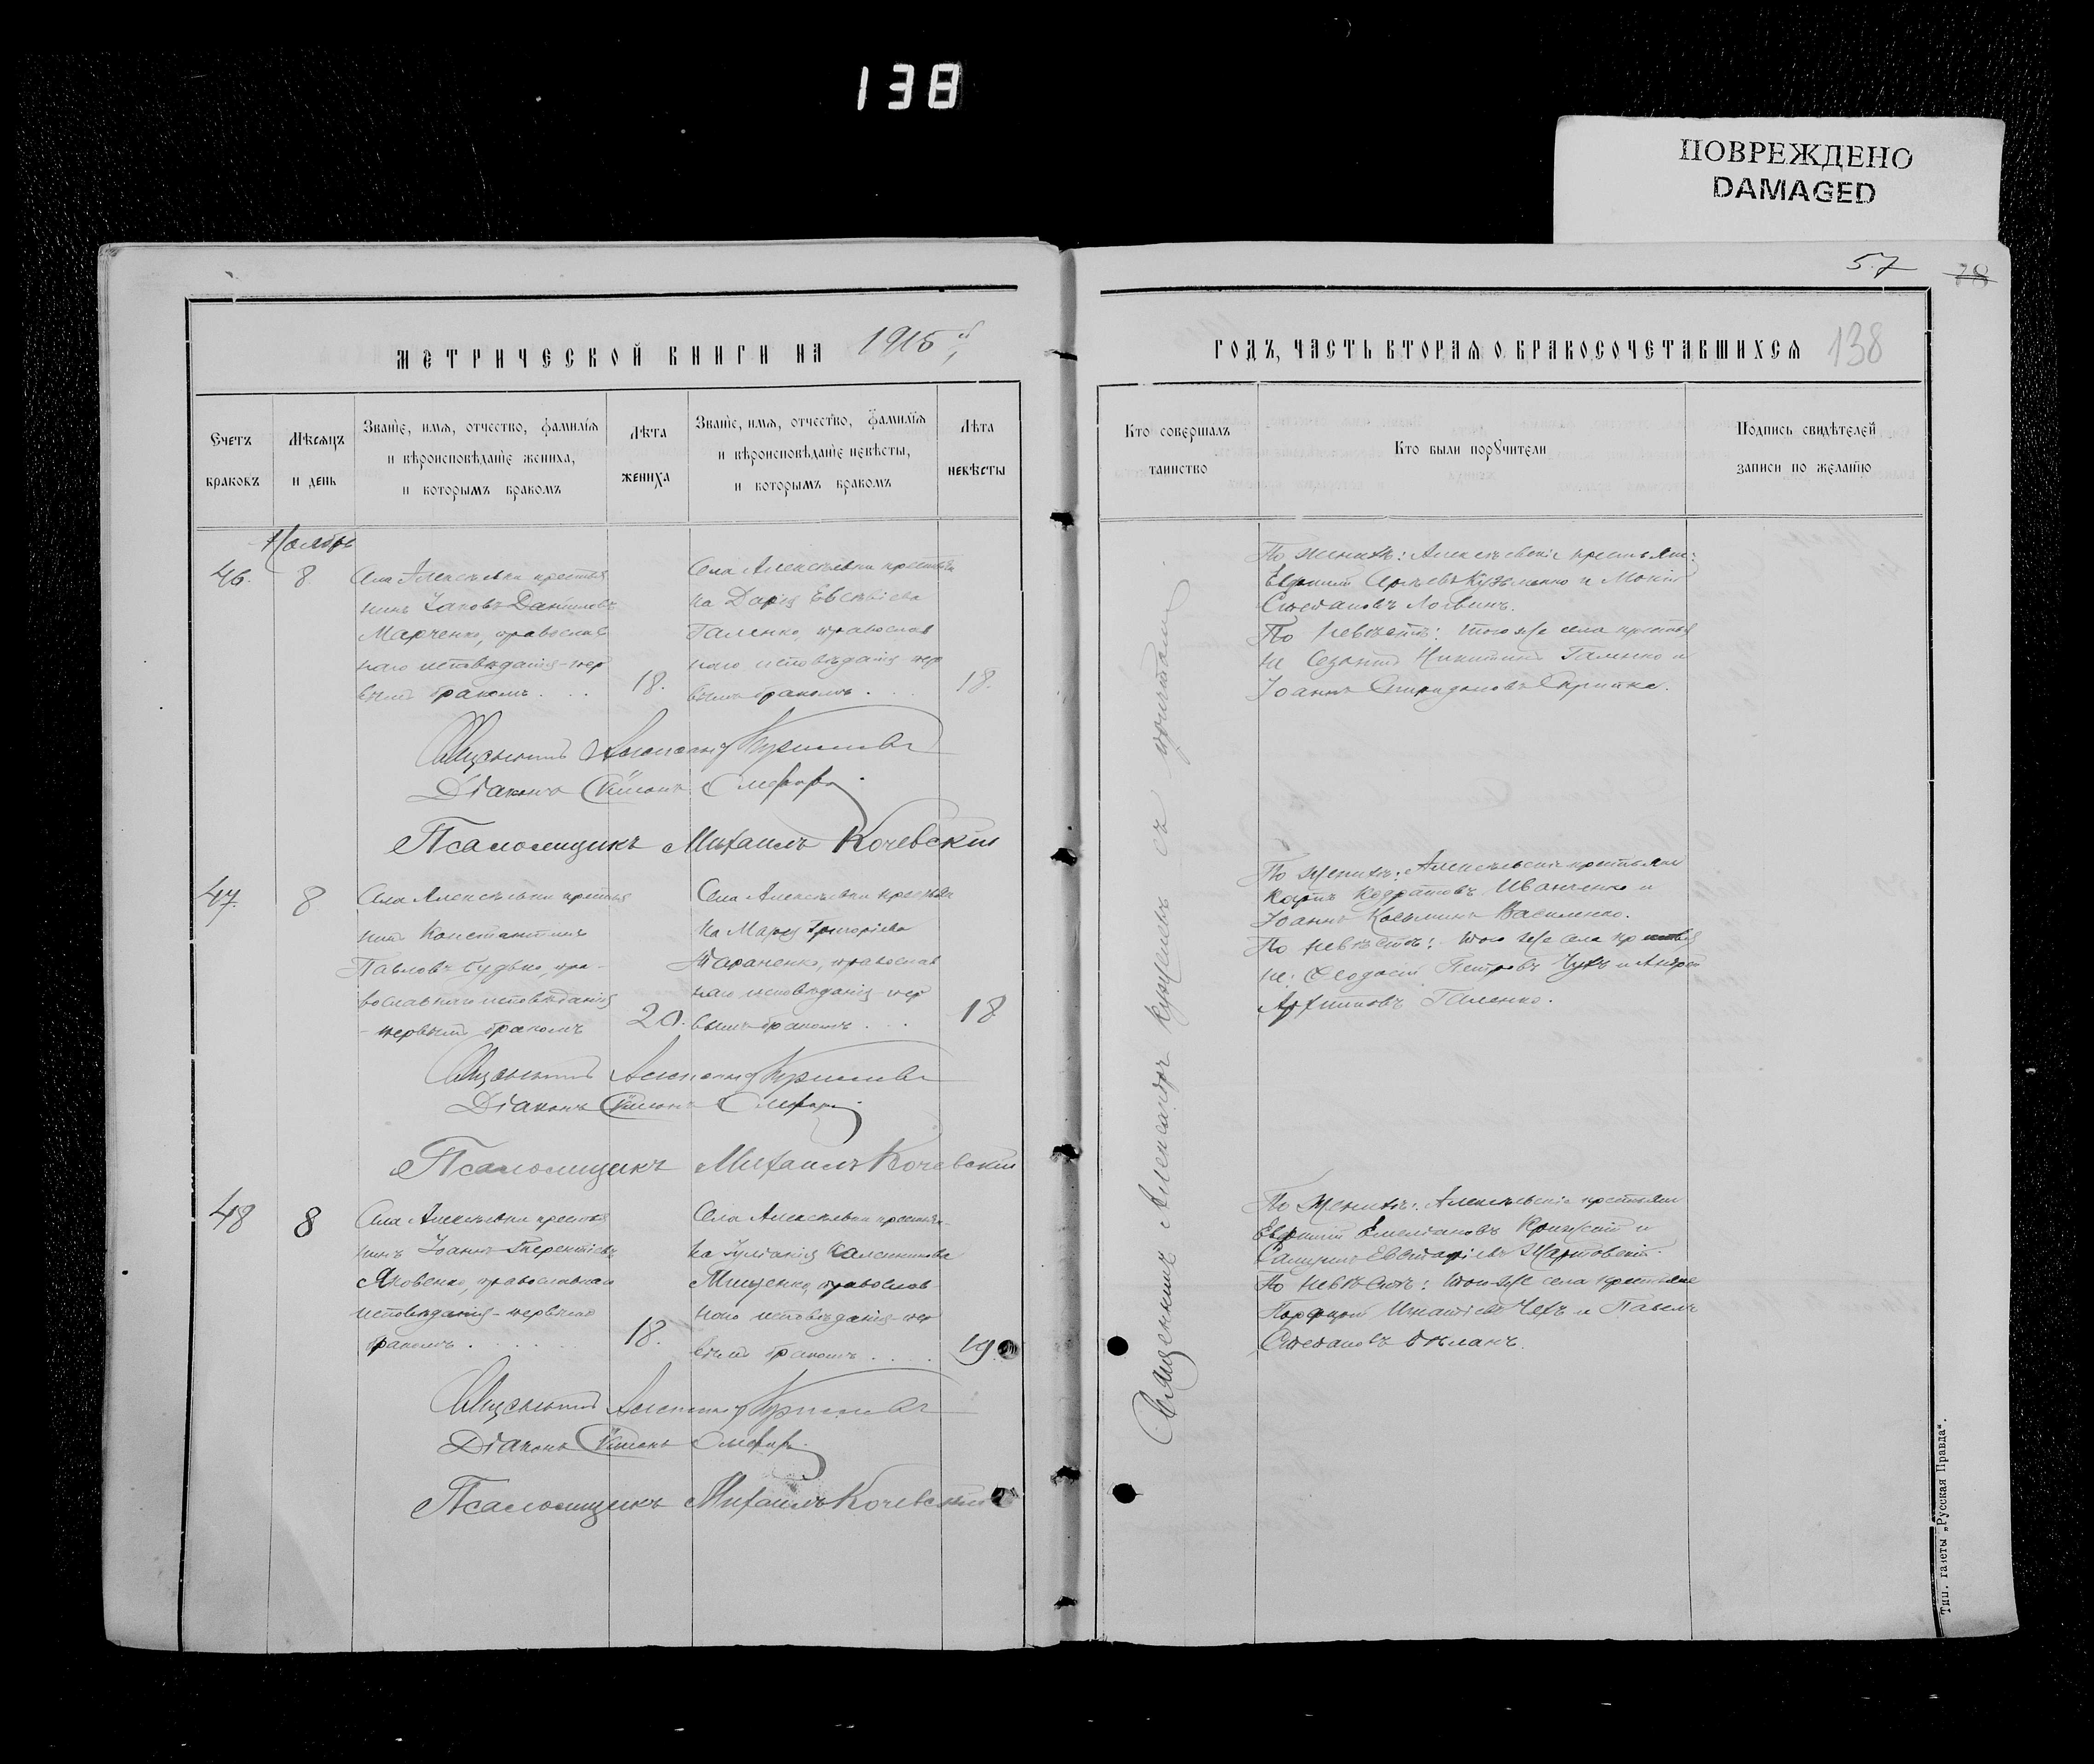 138
ПОВРЕЖДЕНО
DAMAGED
57
78
МЕТРИЧЕСКОЙ КНИГИ НА 1915 й
ГОДЪ, ЧАСТЬ ВТОРАЯ О БРАКОСОЧЕТАВШИХСЯ 138
Счетъ браковъ
Мѣсяцъ и день
Званіе, имя, отчество, фамилія
и вѣроисповѣданіе жениха,
и которымъ бракомъ
Лѣта жениха
Званіе, имя, отчество, фамилія
и вѣроисповѣданіе невѣсты,
и которымъ бракомъ
Лѣта невѣсты
Кто совершалъ таинство
Кто были поручители
Подпись свидѣтелей
записи по желанію
Ноябрь
46. 8.
Села Алексѣевки крестья
нинъ Іаковъ Даніиловъ
Марченко, православ
наго исповѣданія - пер
вымъ бракомъ . . .
18.
Села Алексѣевки крестьян
ка Дарія Евсевіева
Галенко, православ
наго исповѣданія пер
вымъ бракомъ . . .
18.
По женихѣ: Алексѣевскіе крестьяне:
Кузьменко и
Стефановъ Логвинъ.
По невѣстѣ: того же села крестья
не Созонтъ Никитинъ Галенко и
Іоаннъ Спиридоновъ Скрипка.
Священникъ Александръ
Діаконъ
Псаломщикъ Михаилъ Кочевскій
47. 8
Села Алексѣевки крестья
нинъ Константинъ
Павловъ Будько, пра-
вославнаго исповѣданія
- первымъ бракомъ
20.
Села Алексѣевки крестьян
ка Марія Григоріева
Тараненко, православ
наго исповѣданія - пер
вымъ бракомъ . . .
18
По женихѣ: Алексѣевскіе крестьяне
Карпъ Кодратовъ Иванченко и
Іоаннъ Косьминъ Василенко.
По невѣстѣ: того же села крестья
не: Феодосій Петровъ Чухъ и Андрей
Архиповъ Галенко.
Священникъ Александръ
Діаконъ
Псаломщикъ Михаилъ Кочевскій
48 8
Села Алексѣевки крестья
нинъ Іоаннъ Терентіевъ
Яковенко, православнаго
исповѣданія - первымъ
бракомъ . . . . . .
18.
Села Алексѣевки крестьян-
ка Іуліанія Калинникова
Мищенко, православ
наго исповѣданія - пер
вымъ бракомъ . . . .
19
По женихѣ: Алексѣевскіе крестьяне
Емеліановъ и
Евстафіевъ
По невѣстѣ: того же села крестьяне
Порфирій Игнатіевъ Чехъ и Павелъ
Стефановъ
Священникъ Александръ
Діаконъ
Псаломщикъ Михаилъ Кочевскій
Священникъ Александръ съ причтомъ.
Тип. газеты „Русская Правда“.